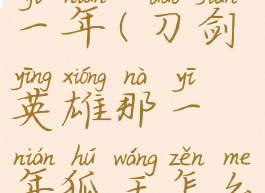 yī nián dāo jiàn
一年(刀剑
yīng xióng nà yī
英雄那一
nián hú wáng zěn me
年狐王怎么